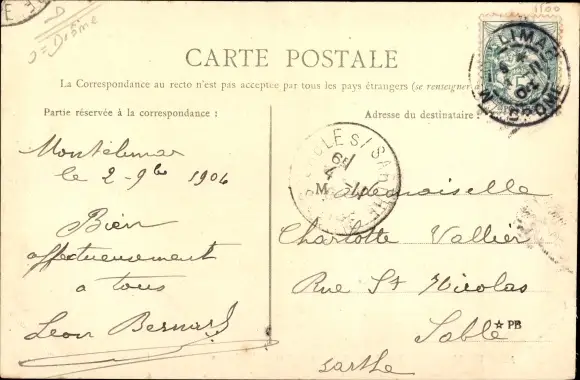 D
= Drôme
1100
CARTE POSTALE
La Correspondance au recto n'est pas acceptée par tous les pays étrangers (se renseigner à
Partie réservée à la correspondance :
Adresse du destinataire :
Montélimar
le 2 - 9bre 1904
Bien
affectueusement
a tous
Leon Bernard
Mademoiselle
Charlotte Vallier
Rue St Nicolas
Sablé
Sarthe
ELIMAR
DROME
SARTHE
PB